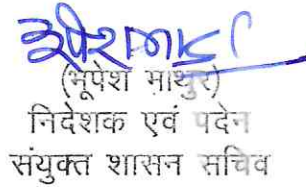 (भूपेश माथुर)
निदेशक एवं पदेन
संयुक्त शासन सचिव